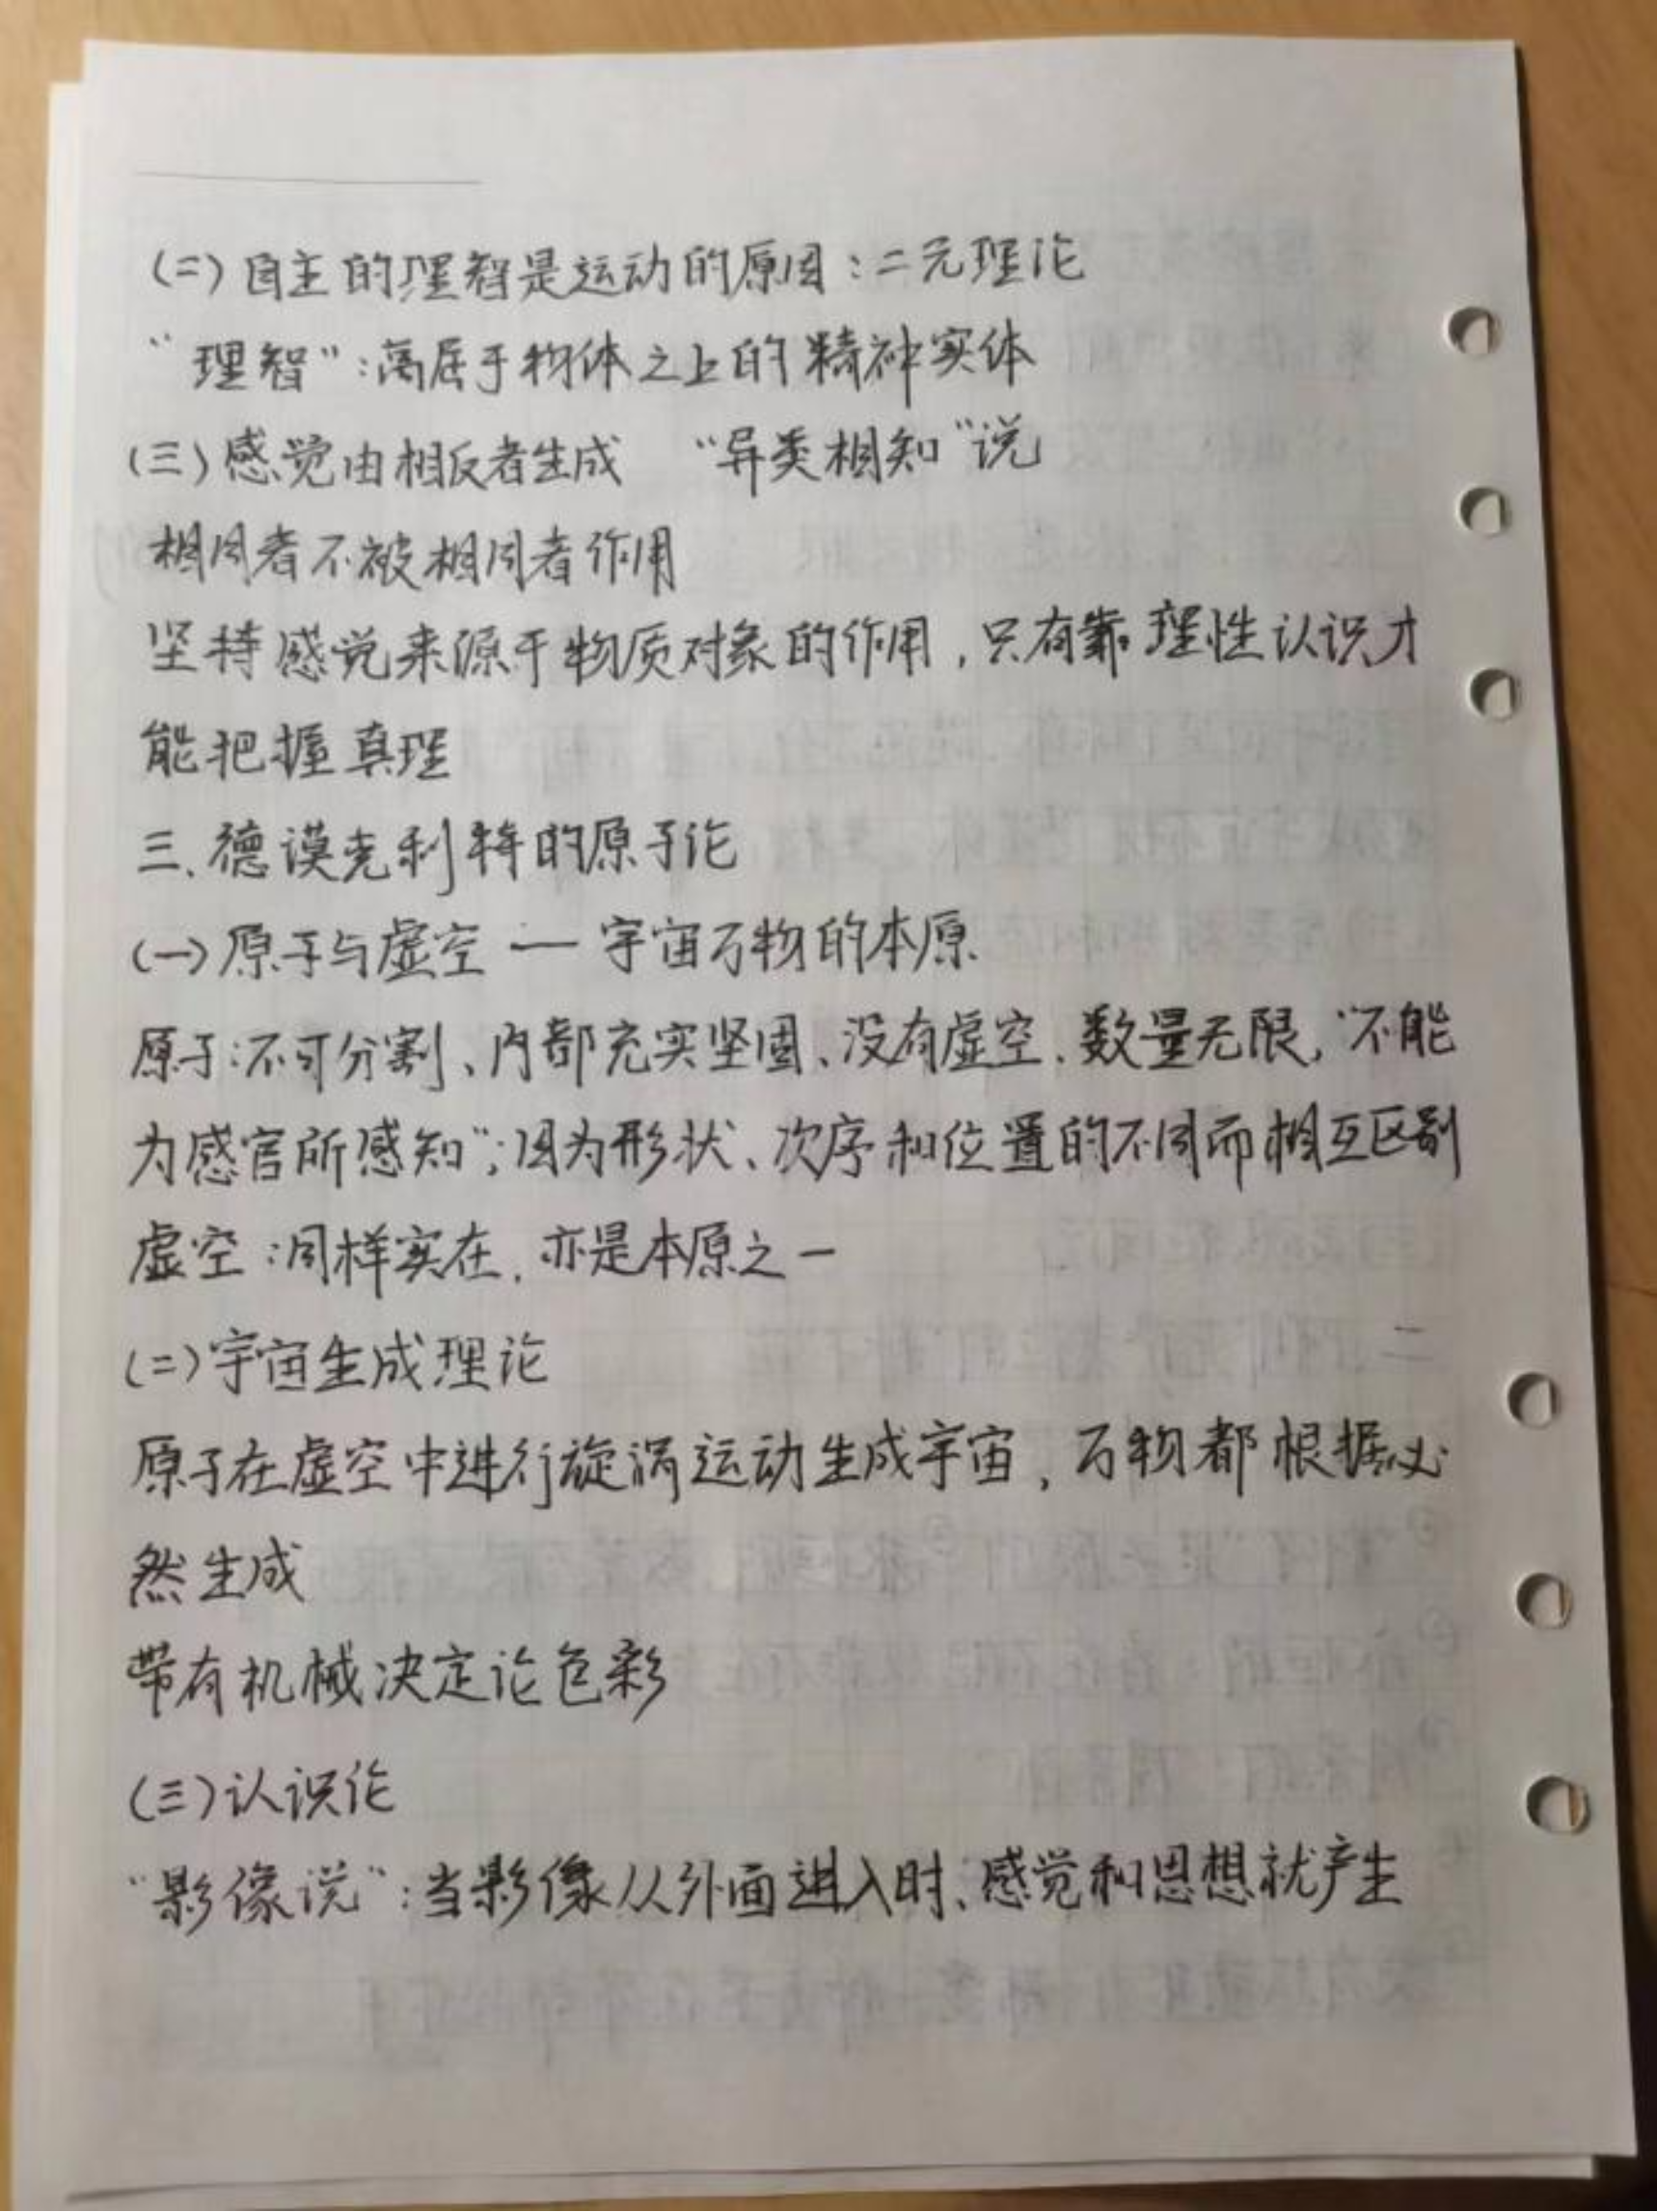 (二)自主的理智是运动的原因：二元理论
“理智”：高居于物体之上的精神实体
(三)感觉由相反者生成 “异类相知”说
相同者不被相同者作用
坚持感觉来源于物质对象的作用，只有靠理性认识才
能把握真理
三、德谟克利特的原子论
(一)原子与虚空 — 宇宙万物的本原
原子：不可分割、内部充实坚固、没有虚空、数量无限，“不能
为感官所感知”；因为形状、次序和位置的不同而相互区别
虚空：同样实在，亦是本原之一
(二)宇宙生成理论
原子在虚空中进行旋涡运动生成宇宙，万物都根据必
然生成
带有机械决定论色彩
(三)认识论
“影像说”：当影像从外面进入时、感觉和思想就产生